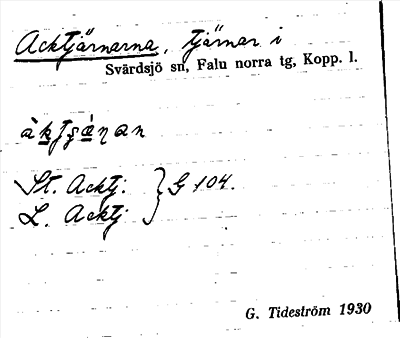 Acktjärnarna, tjärnar i
Svärdsjö sn, Falu norra tg, Kopp. l.
St. Acktj. } G 104.
L. Acktj
G. Tideström 1930